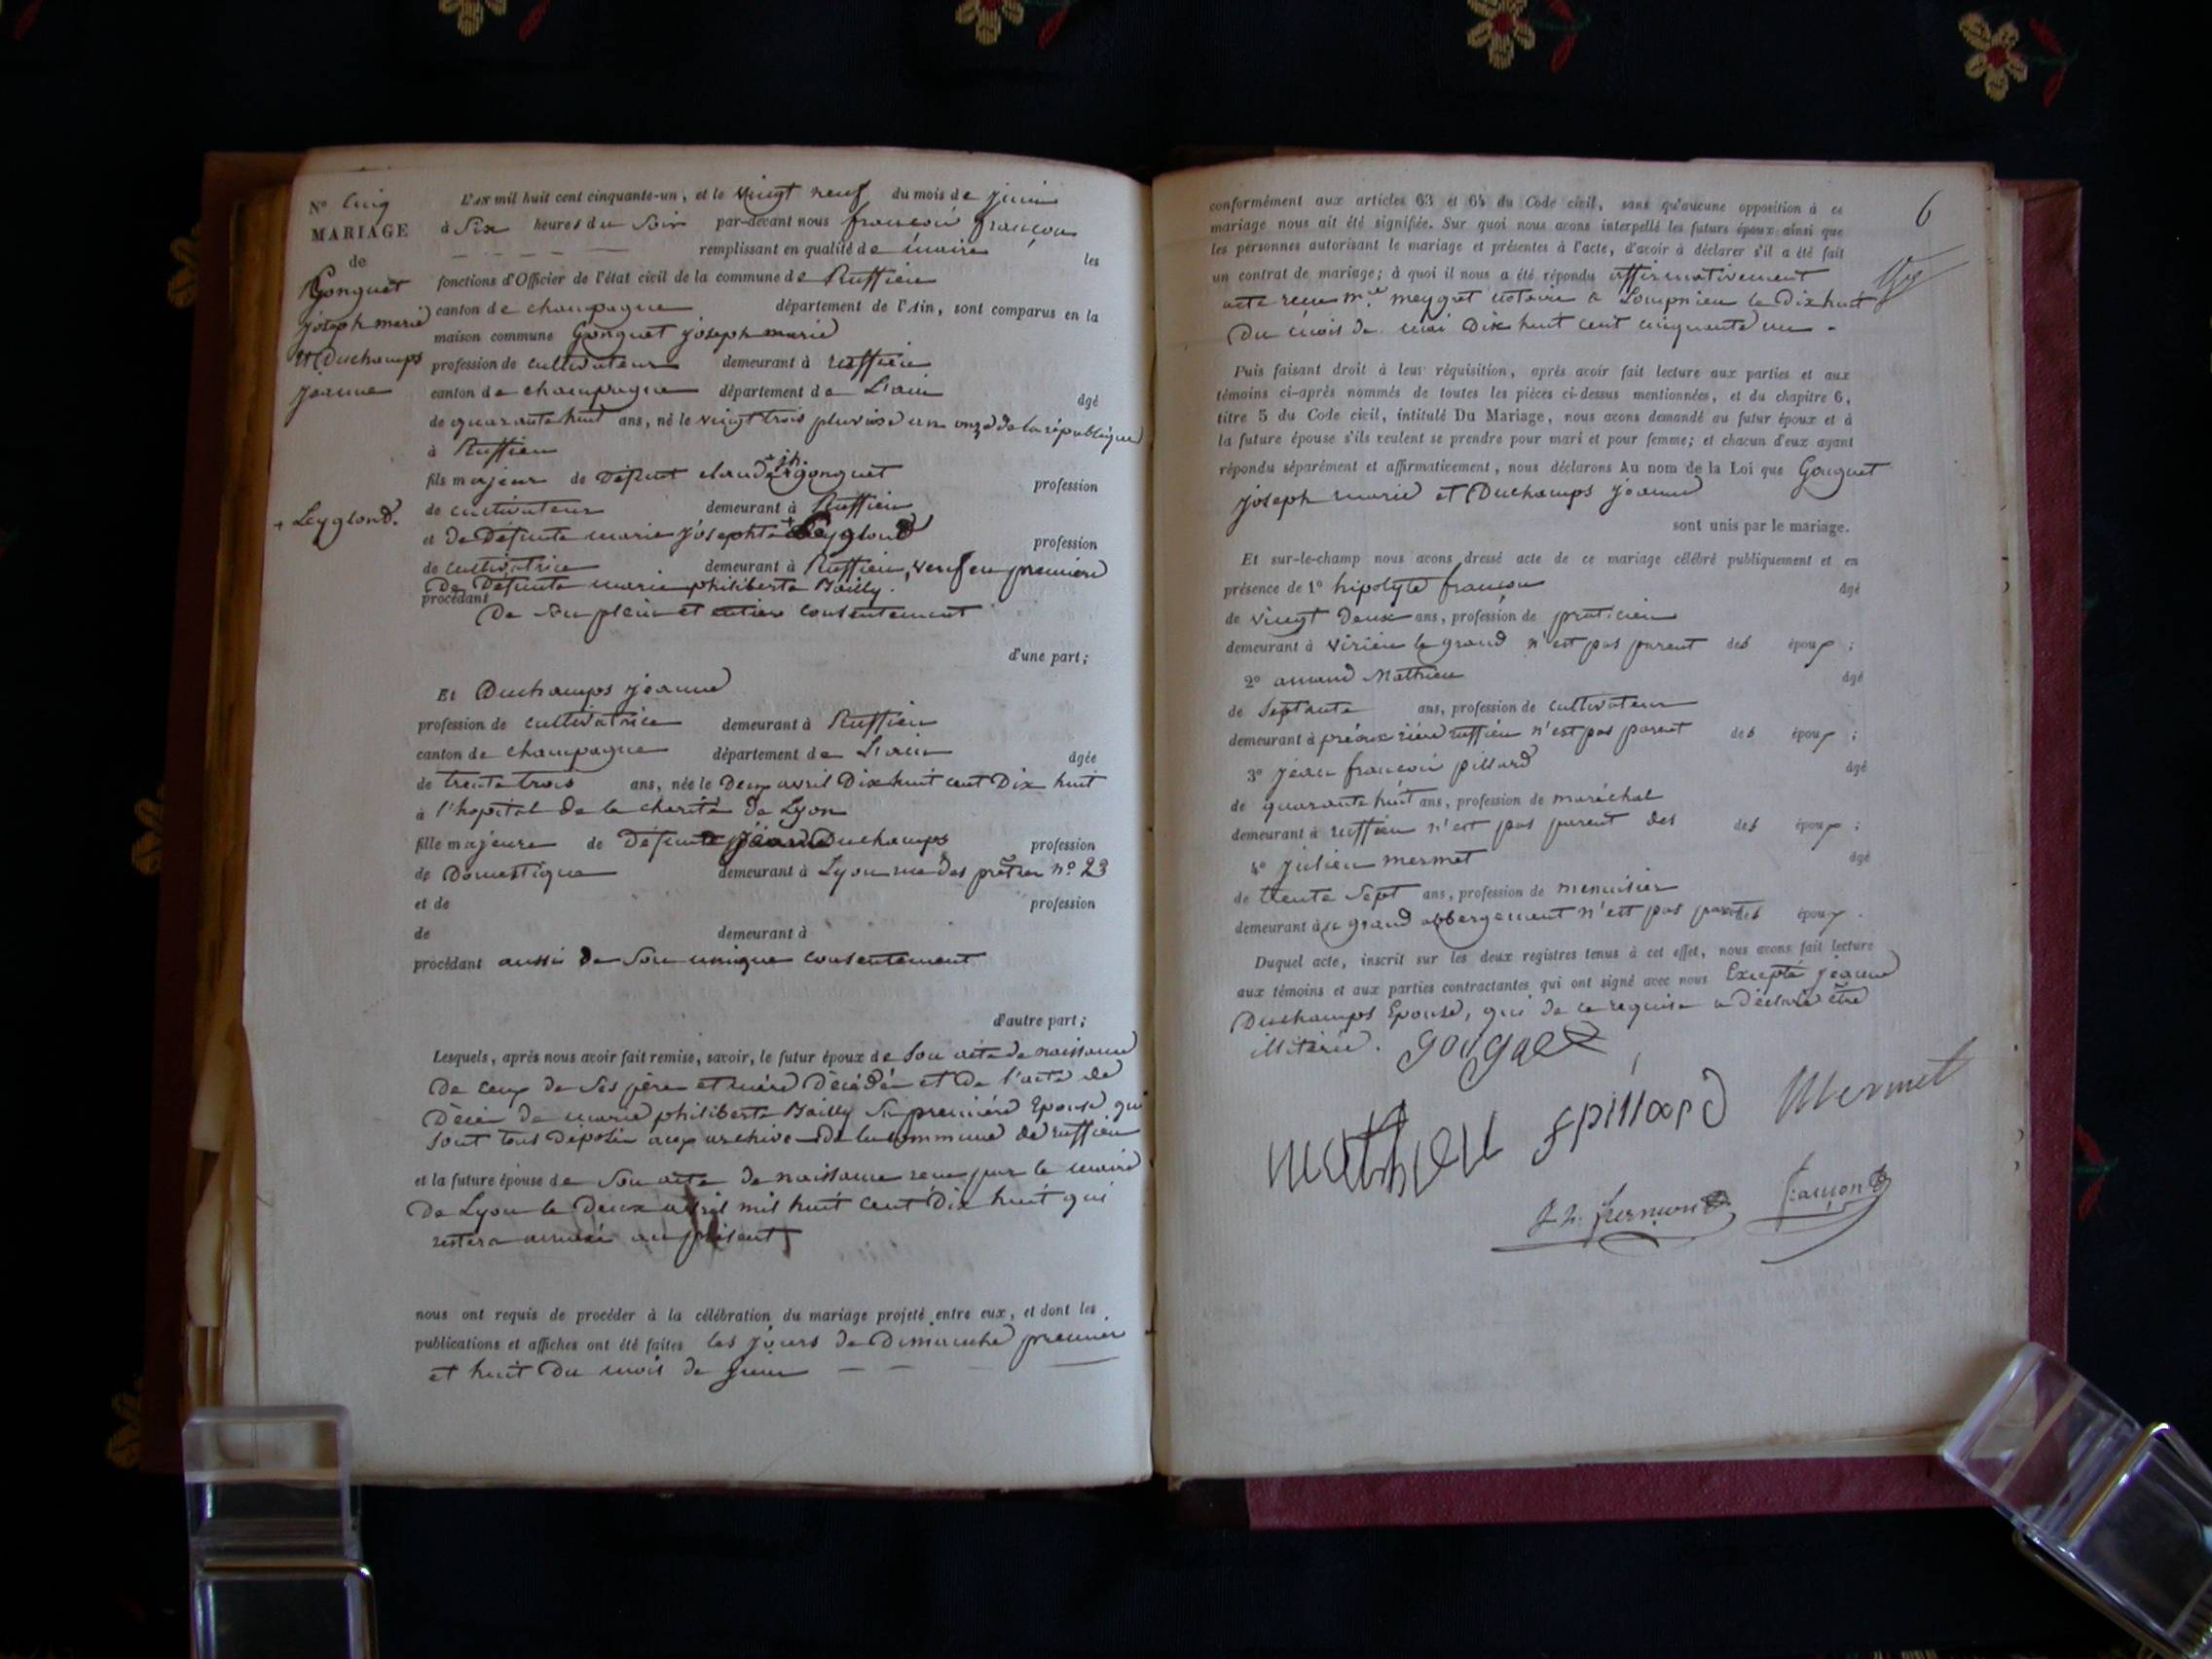 N° Cinq
MARIAGE
de
Gonguet
joseph marie
et Duchamps
jeanne
+ Leyglond.
L'AN mil huit cent cinquante-un, et le vingt neuf du mois de juin
à Six heures du Soir par-devant nous françois françon
remplissant en qualité de maire les
fonctions d'Officier de l'état civil de la commune de Ruffieu
canton de champagne département de l'Ain, sont comparus en la
maison commune Gonguet joseph marie
profession de cultivateur demeurant à ruffieu
canton de champagne département de Lain âgé
de quarante huit ans, né le vingt trois pluviose an onze de la république
à Ruffieu
fils majeur de Défunt claude + jh. gonguet profession
de cultivateur demeurant à Ruffieu
et de Défunte marie josephte + Leyglond profession
de cultivatrice demeurant à Ruffieu, veuf en première
De Défunte marie philiberte Bailly.
procédant
De son plein et entier consentement
d'une part;
Et Duchamps jeanne
profession de cultivatrice demeurant à Ruffieu
canton de champagne département de Lain âgée
de trente trois ans, née le Deux avril Dix huit cent Dix huit
à l'hopital de la charité de Lyon
fille majeure de Défunte jeanne Duchamps profession
de Domestique demeurant à Lyon rue des prêtres n° 23
et de profession
de demeurant à
procédant aussi de Son unique consentement
d'autre part;
Lesquels, après nous avoir fait remise, savoir, le futur époux de Son acte de naissance
De ceux de Ses père et mère Décédés et De l'acte de
Décès de marie philiberte Bailly Sa première Epouse qui
Sont tous Déposés aux archives de la commune de ruffieu
et la future épouse de Son acte de naissance reçu par le maire
De Lyon le Deux avril mil huit cent Dix huit qui
restera annexé au présent
nous ont requis de procéder à la célébration du mariage projeté entre eux, et dont les
publications et affiches ont été faites les jours de Dimanche premier
et huit Du mois de juin
6
conformément aux articles 63 et 64 du Code civil, sans qu'aucune opposition à ce
mariage nous ait été signifiée. Sur quoi nous avons interpellé les futurs époux ainsi que
les personnes autorisant le mariage et présentes à l'acte, d'avoir à déclarer s'il a été fait
un contrat de mariage; à quoi il nous a été répondu affirmativement
acte reçu me meygret notaire à Lompnieu le Dix huit
Du mois de mai Dix huit cent cinquante un -
Puis faisant droit à leur réquisition, après avoir fait lecture aux parties et aux
témoins ci-après nommés de toutes les pièces ci-dessus mentionnées, et du chapitre 6,
titre 5 du Code civil, intitulé Du Mariage, nous avons demandé au futur époux et à
la future épouse s'ils veulent se prendre pour mari et pour femme; et chacun d'eux ayant
répondu séparément et affirmativement, nous déclarons Au nom de la Loi que Gonguet
joseph marie et Duchamps jeanne
sont unis par le mariage.
Et sur-le-champ nous avons dressé acte de ce mariage célébré publiquement et en
présence de 1° hipolyte françon âgé
de vingt deux ans, profession de praticien
demeurant à virieu le grand n'est pas parent des époux;
2° amand Mathieu âgé
de Septante ans, profession de cultivateur
demeurant à préoux rière ruffieu n'est pas parent des époux;
3° jean françois pillard âgé
de quarante huit ans, profession de maréchal
demeurant à ruffieu n'est pas parent des des époux;
4° julien mermet âgé
de trente Sept ans, profession de menuisier
demeurant à grand abbergement n'est pas parent des époux.
Duquel acte, inscrit sur les deux registres tenus à cet effet, nous avons fait lecture
aux témoins et aux parties contractantes qui ont signé avec nous Excepté jeanne
Duchamps Epouse, qui de ce requise a déclaré être
illitérée. gouguet
mathieu f pillard Mermet
françon